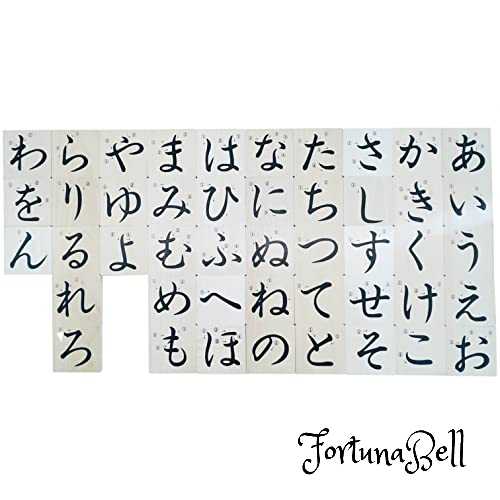 あいうえお
かきくけこ
さしすせそ
たちつてと
なにぬねの
はひふへほ
まみむめも
やゆよ
らりるれろ
わをん
FortunaBell